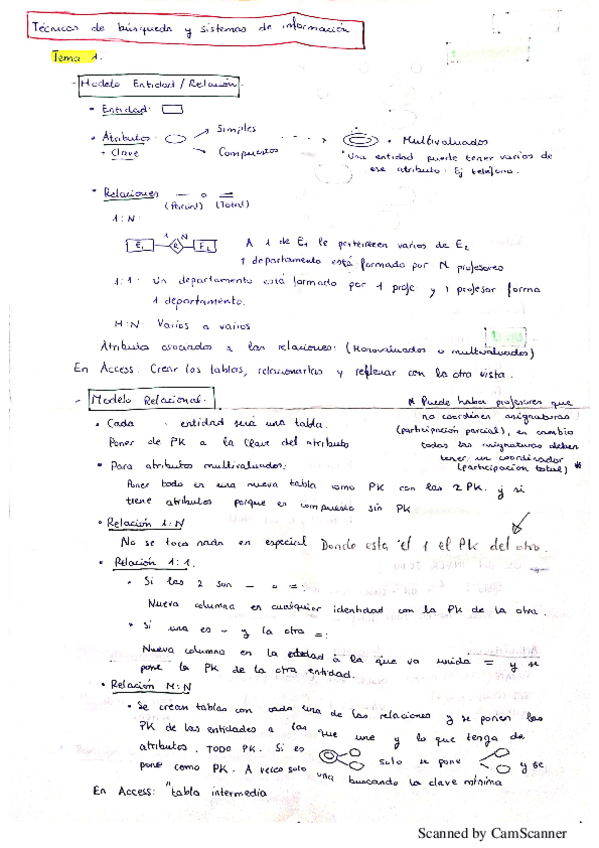 Técnicas de búsqueda y sistemas de información
Tema 1.
- Modelo Entidad / Relación.
• Entidad:
• Atributos: → Simples
→ Compuestos
- Clave
• Multivaluados
Una entidad puede tener varios de
ese atributo. Ej teléfono.
• Relaciones — o =
(Parcial) (Total)
1:N
E1 1 R N E2
A 1 de E1 le pertenecen varios de E2
1 departamento está formado por N profesores
1:1: Un departamento está formado por 1 profe y 1 profesor forma
1 departamento.
M:N: Varios a varios
Atributos asociados a las relaciones: (Monovaluados o multivaluados)
En Access: Crear las tablas, relacionarlas y rellenar con la otra vista.
- Modelo Relacional.
* Puede haber profesores que
no coordinen asignaturas
(participación parcial), en cambio
todas las asignaturas deben
tener un coordinador
(participación total) *
• Cada entidad será una tabla.
Poner de PK a la clave del atributo
• Para atributos multivaluados:
Poner todo en una nueva tabla como PK con las 2 PK. y si
tiene atributos porque es compuesto sin PK
• Relación 1:N
No se toca nada en especial Donde esta el 1 el PK del otro.
• Relación 1:1.
• Si las 2 son — o =:
Nueva columna en cualquier identidad con la PK de la otra.
• Si una es - y la otra =:
Nueva columna en la entidad a la que va unida = y se
pone la PK de la otra entidad.
• Relación M:N
• Se crean tablas con cada una de las relaciones y se ponen las
PK de las entidades a las que une y lo que tenga de
atributos. TODO PK. Si es solo se pone y se
pone como PK. A veces solo una buscando la clave mínima
En Access: "tabla intermedia
Scanned by CamScanner